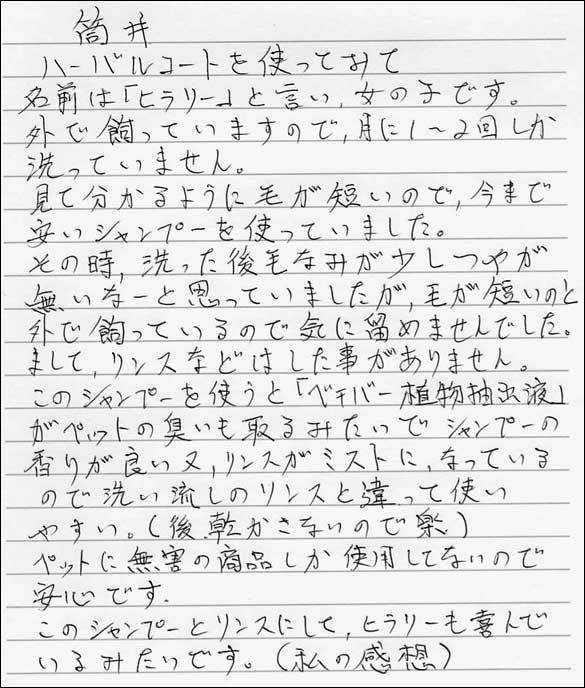 筒井
ハーバルコートを使ってみて
名前は「ヒラリー」と言い,女の子です。
外で飼っていますので,月に1～2回しか
洗っていません。
見て分かるように毛が短いので,今まで
安いシャンプーを使っていました。
その時,洗った後毛なみが少しつやが
無いなーと思っていましたが,毛が短いのと
外で飼っているので気に留めませんでした。
まして,リンスなどはした事がありません。
このシャンプーを使うと「ベチバー植物抽出液」
がペットの臭いも取るみたいでシャンプーの
香りが良い又,リンスがミストに,なっている
ので洗い流しのリンスと違って使い
やすい。(後乾かさないので楽)
ペットに無害の商品しか使用してないので
安心です.
このシャンプーとリンスにして,ヒラリーも喜んで
いるみたいです。(私の感想)